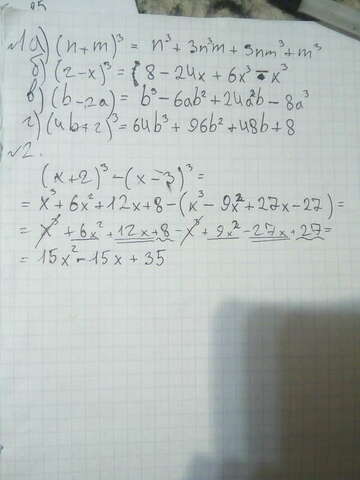 №1 а) (n+m)³ = n³+3n³m+3nm³+m³
б) (2-x)³ = 8-24x+6x³-x³
в) (b-2a) = b³-6ab²+24a²b-8a³
г) (4b+2)³ = 64b³+96b²+48b+8
№2.
(x+2)³-(x-3)³=
= x³+6x²+12x+8-(x³-9x²+27x-27)=
= x³+6x²+12x+8-x³+9x²-27x+27=
= 15x²-15x+35